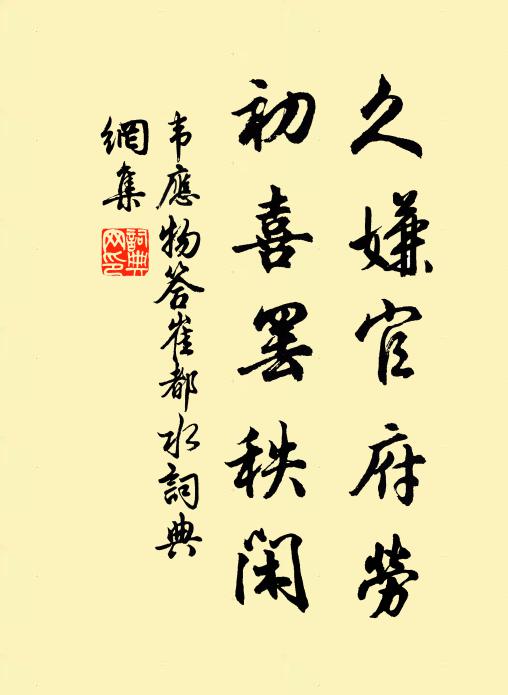 久嫌官府勞
初喜罷秩閑
韦應物答崔都水詞典
網集
詞典
网印